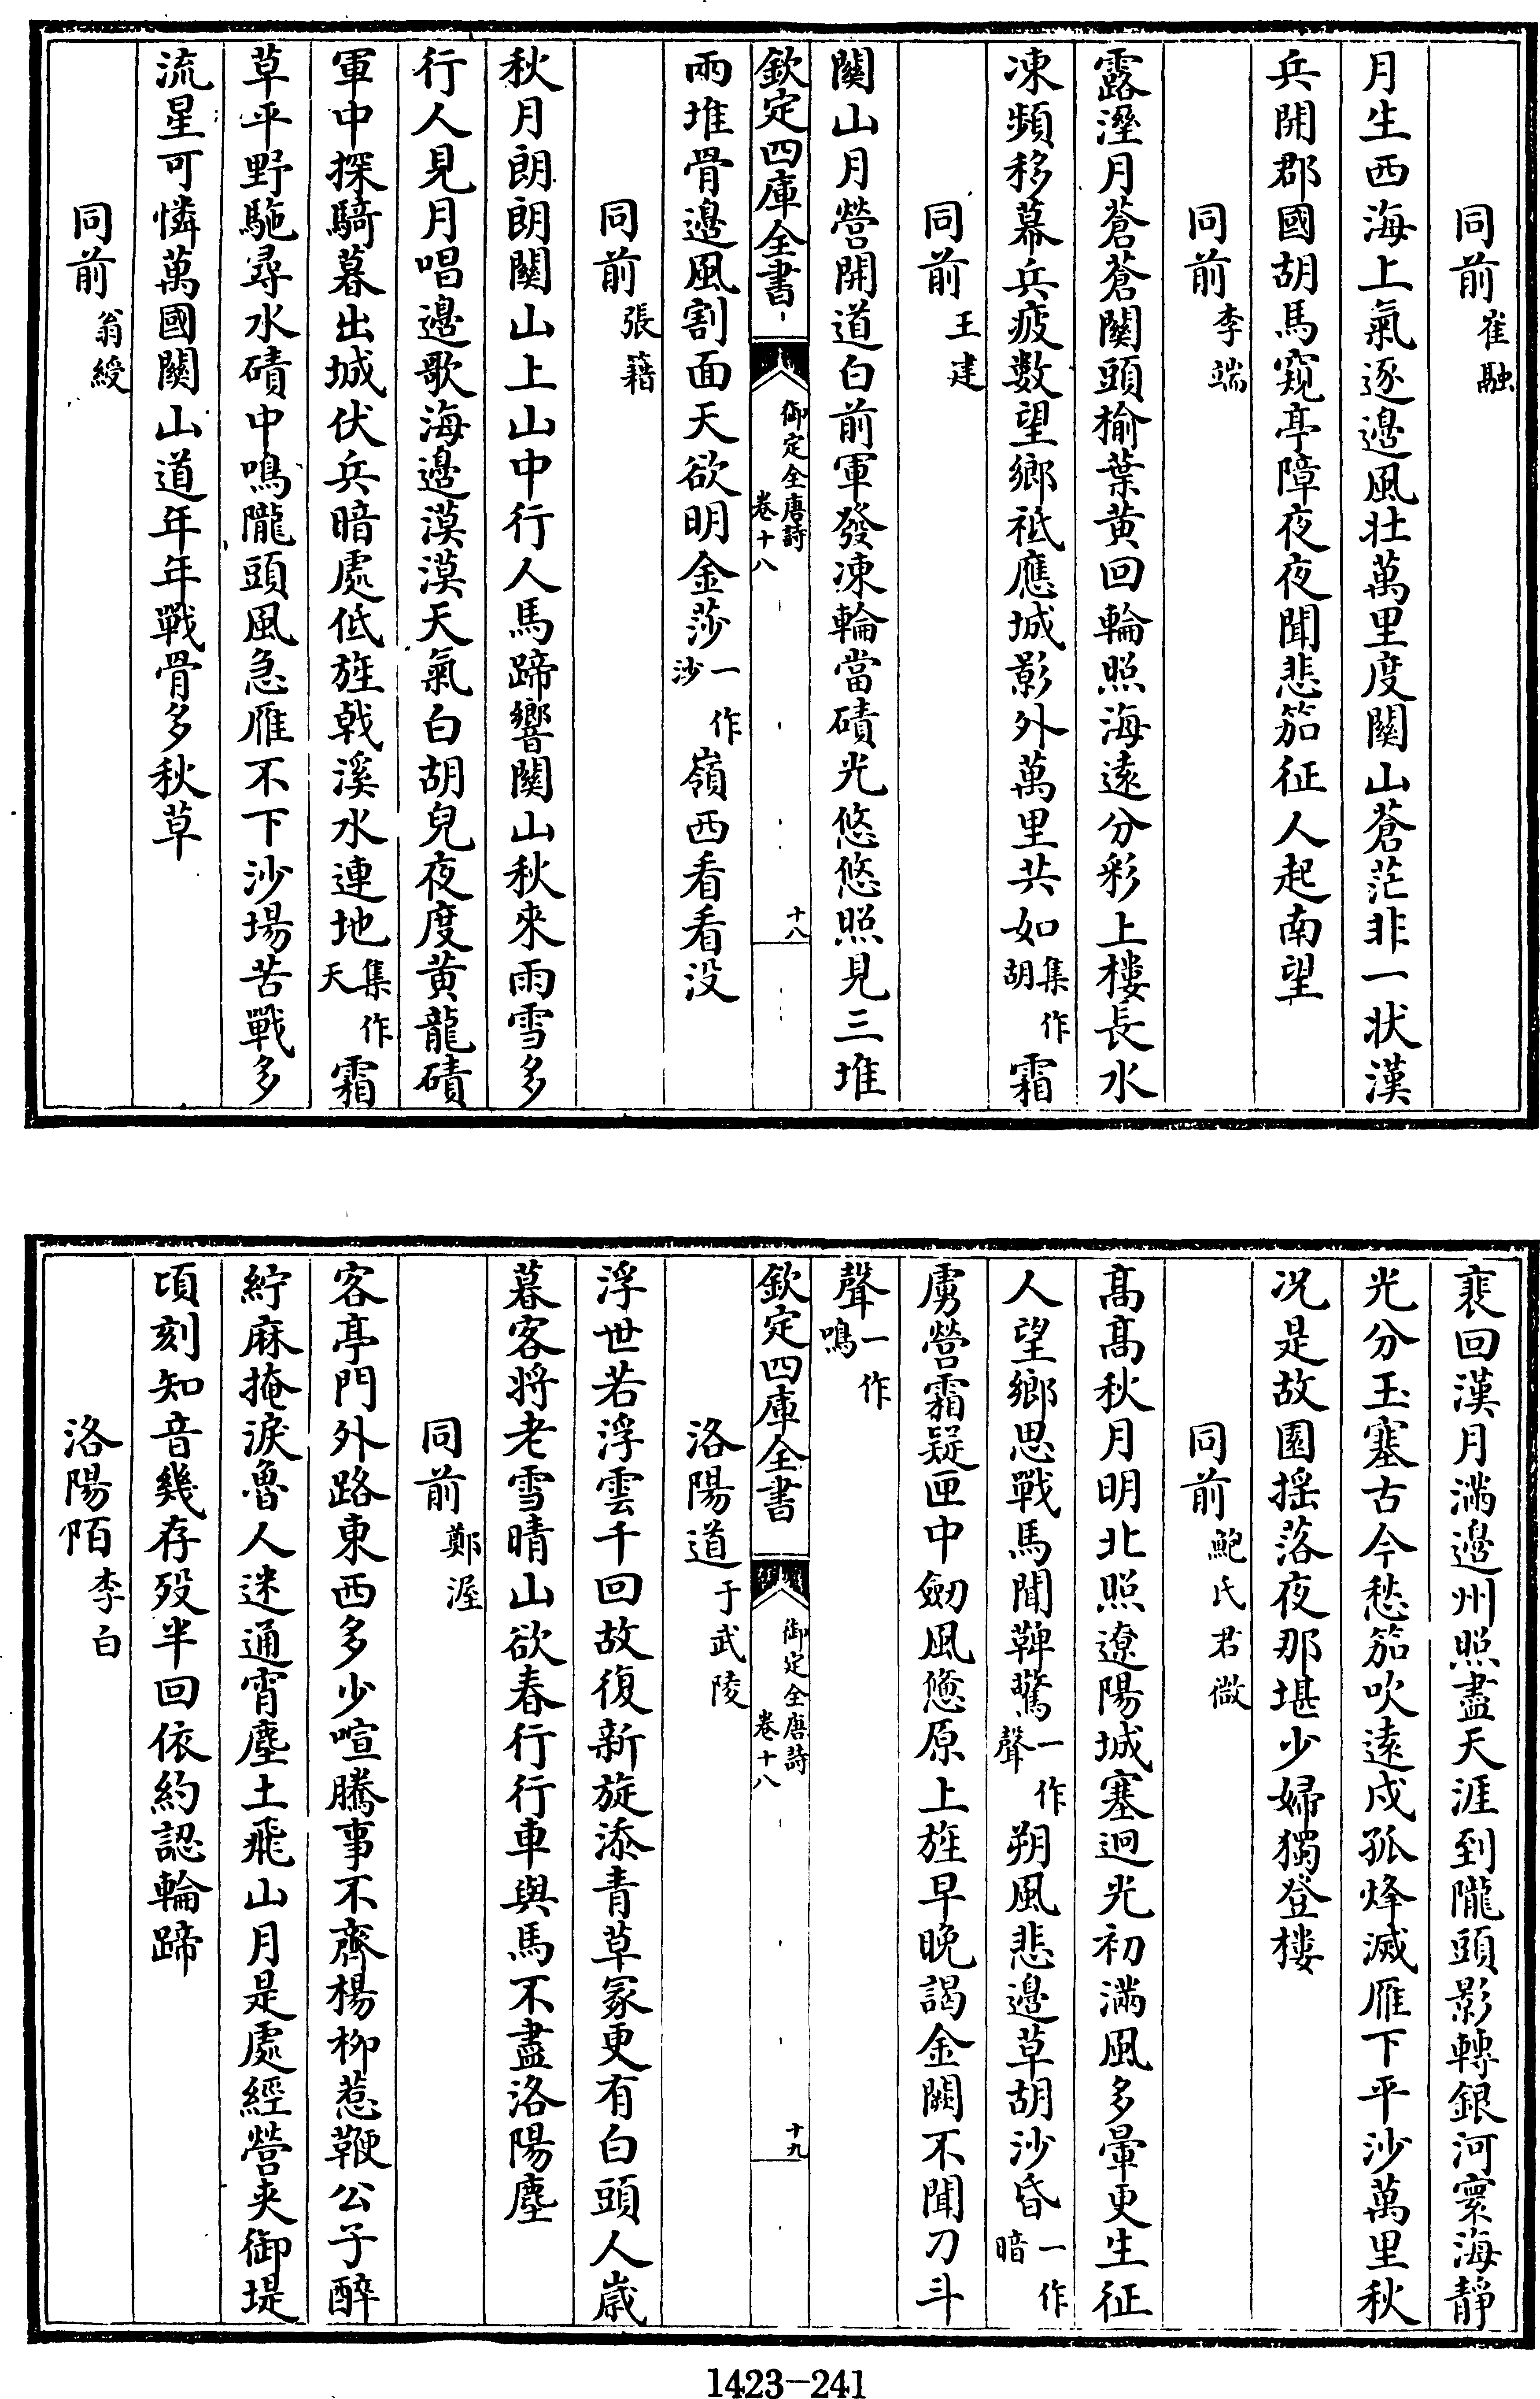 同前崔融
月生西海上氣逐邊風壮萬里度關山蒼茫非一狀漢
兵開郡國胡馬窺亭障夜夜聞悲笳征人起南望
同前李端
露溼月蒼蒼關頭榆葉黄回輪照海遠分彩上樓長水
凍頻移幕兵疲數望鄉祗應城影外萬里共如集作胡霜
同前王建
關山月營開道白前軍發凍輪當磧光悠悠照見三堆
欽定四庫全書
御定全唐詩
卷十八
十八
兩堆骨邊風割面天欲明金莎一作沙嶺西看看没
同前張籍
秋月朗朗關山上山中行人馬蹄響關山秋來雨雪多
行人見月唱邊歌海邊漠漠天氣白胡兒夜度黄龍磧
軍中探騎暮出城伏兵暗處低旌戟溪水連地集作天霜
草平野駞尋水磧中鳴隴頭風急雁不下沙場苦戰多
流星可憐萬國關山道年年戰骨多秋草
同前翁綬
裴回漢月滿邊州照盡天涯到隴頭影轉銀河寰海靜
光分玉塞古今愁笳吹遠戍孤烽滅雁下平沙萬里秋
况是故園揺落夜那堪少婦獨登樓
同前鮑氏君徽
髙髙秋月明北照遼陽城塞迥光初滿風多暈更生征
人望鄉思戰馬聞鞞驚一作聲朔風悲邊草胡沙昏一作暗
虜營霜疑匣中劒風憊原上旌早晚謁金闕不聞刀斗
聲一作鳴
欽定四庫全書
御定全唐詩
卷十八
十九
洛陽道于武陵
浮世若浮雲千回故復新旋添青草冢更有白頭人歲
暮客将老雪晴山欲春行行車與馬不盡洛陽塵
同前鄭渥
客亭門外路東西多少喧騰事不齊楊柳惹鞭公子醉
紵麻掩淚魯人迷通宵塵土飛山月是處經營夾御堤
頃刻知音幾存殁半回依約認輪蹄
洛陽陌李白
1423-241